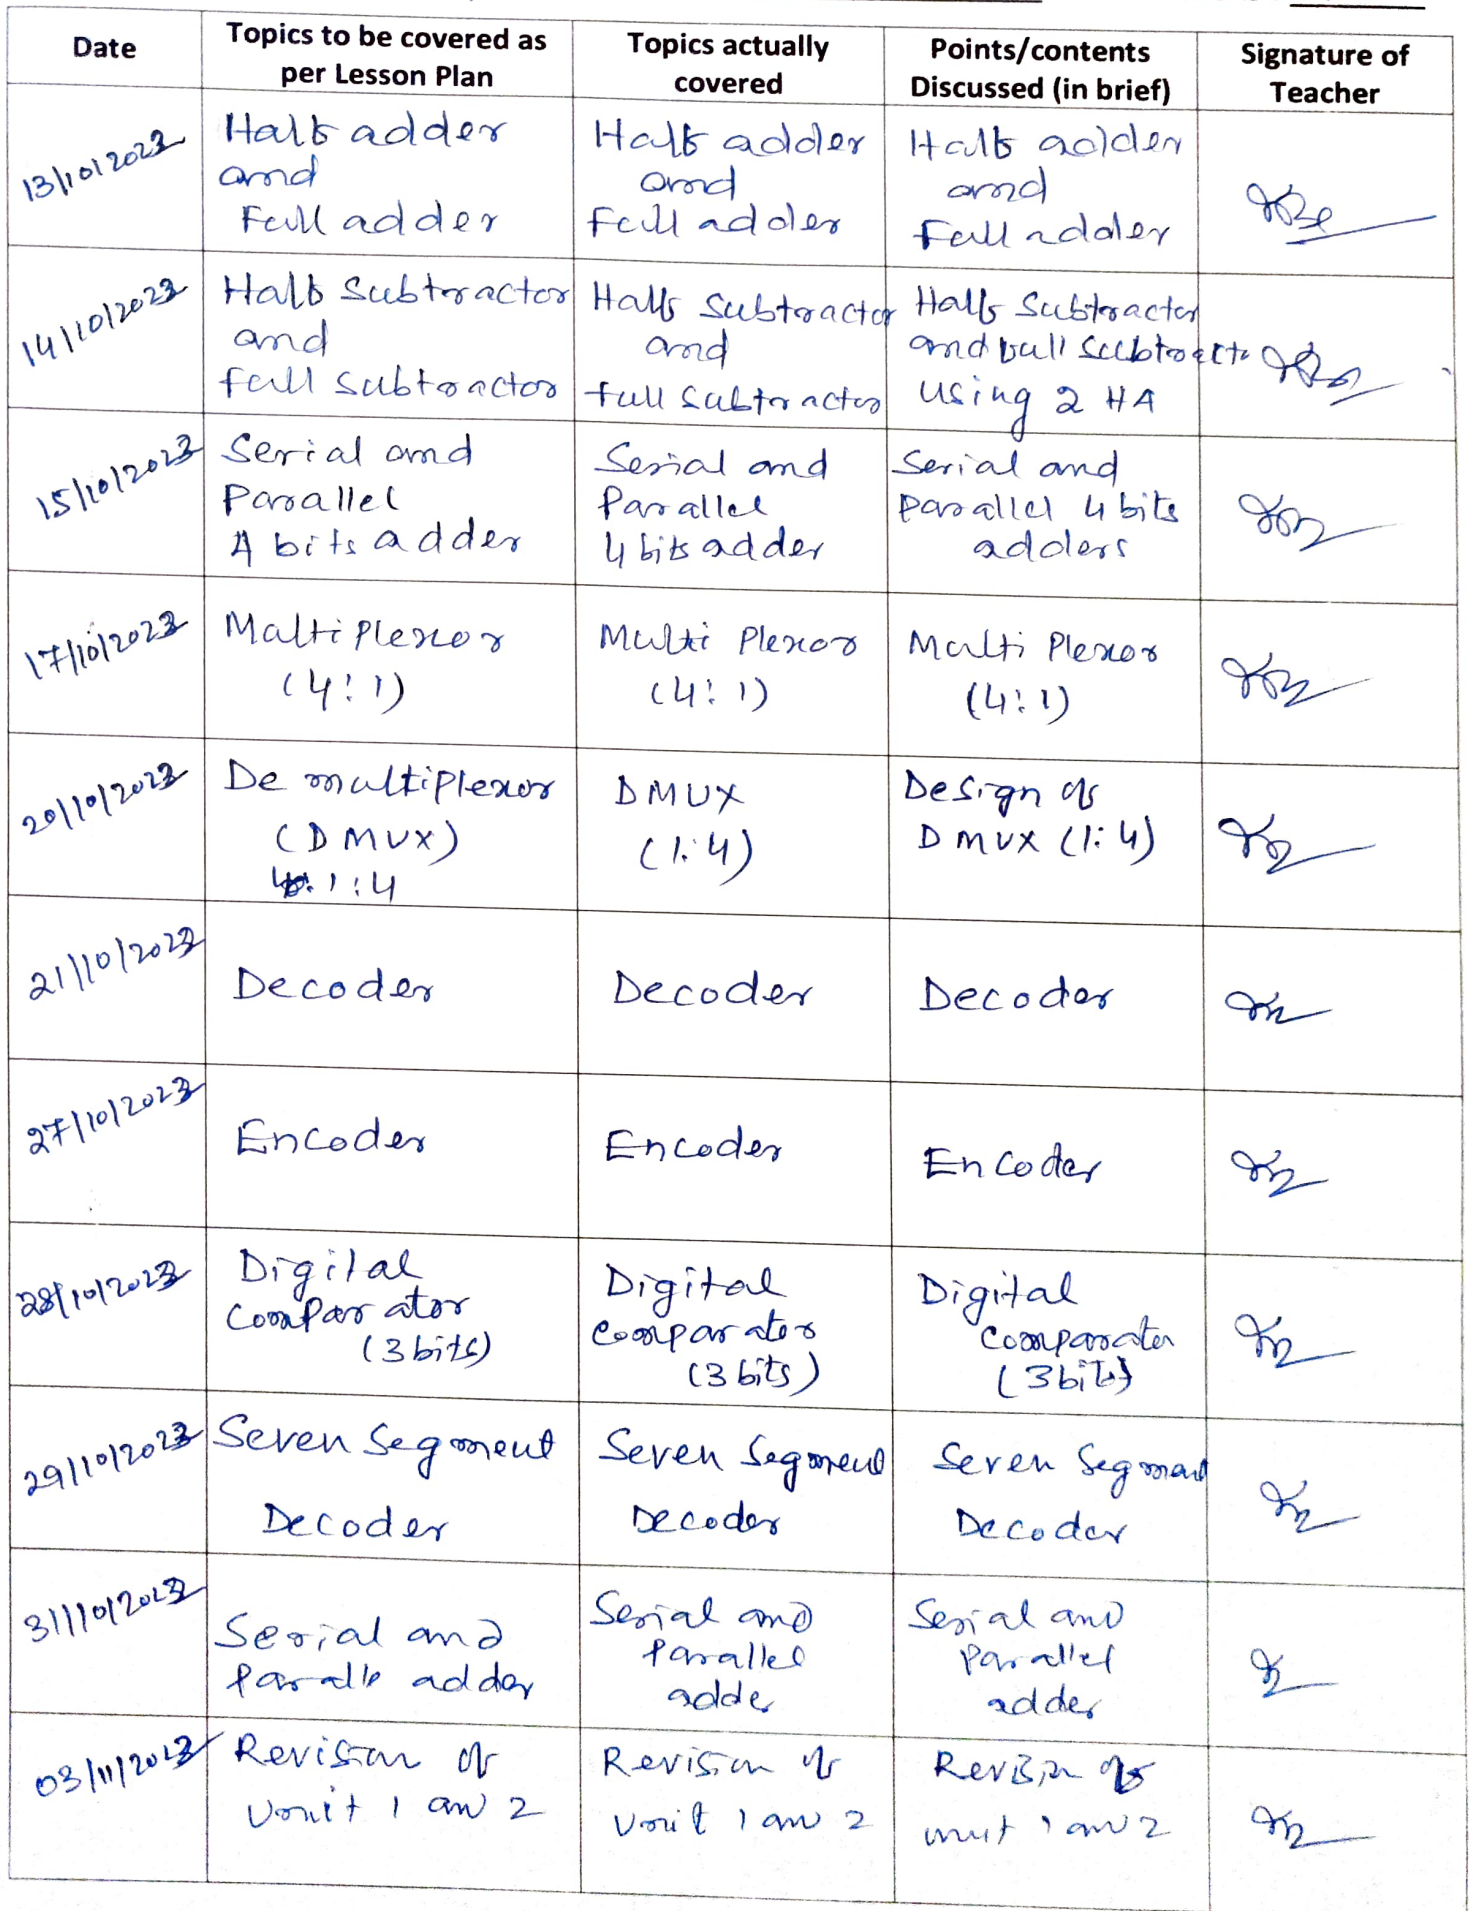 Date
Topics to be covered as
per Lesson Plan
Topics actually
covered
Points/contents
Discussed (in brief)
Signature of
Teacher
13/10/2023
Half adder
and
Full adder
Half adder
and
Full adder
Half adder
and
Full adder
14/10/2023
Half Subtractor
and
full subtractor
Half Subtractor
and
full Subtractor
Half Subtractor
and full Subtractor
using 2 HA
15/10/2023
Serial and
Parallel
4 bits adder
Serial and
Parallel
4 bits adder
Serial and
parallel 4 bits
adders
17/10/2023
Multi Plexor
(4:1)
Multi Plexor
(4:1)
Multi Plexor
(4:1)
20/10/2023
De multiplexor
(DMUX)
1:4
DMUX
(1:4)
Design of
DMUX (1:4)
21/10/2023
Decoder
Decoder
Decoder
27/10/2023
Encoder
Encoder
Encoder
28/10/2023
Digital
Comparator
(3 bits)
Digital
comparator
(3 bits)
Digital
Comparator
(3 bits)
29/10/2023
Seven Segment
Decoder
Seven Segment
Decoder
Seven Segment
Decoder
31/10/2023
Serial and
adder
Serial and
Parallel
adder
Serial and
Parallel
adder
03/11/2023
Revision of
Unit 1 and 2
Revision of
Unit 1 and 2
Revision of
unit 1 and 2